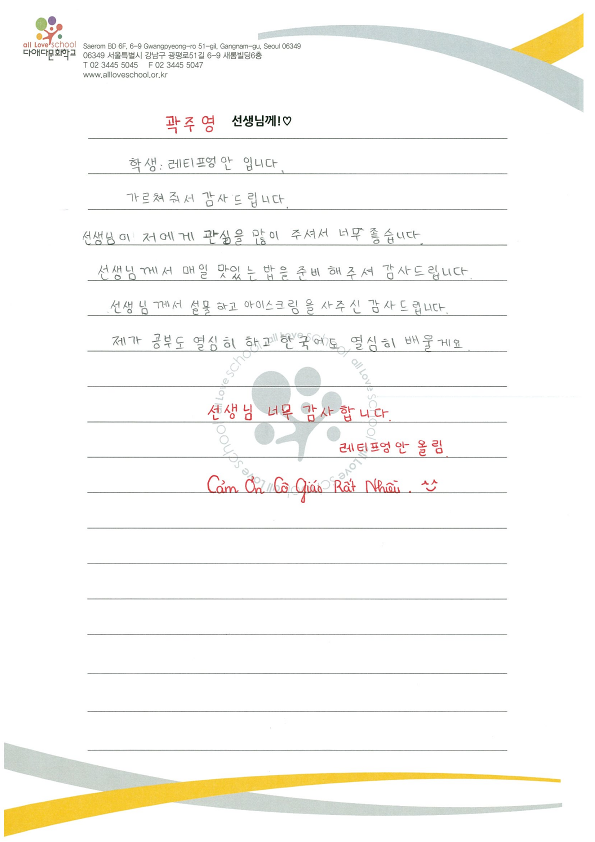 all Love school
다애다문화학교
Saerom BD 6F, 6-9 Gwangpyeong-ro 51-gil, Gangnam-gu, Seoul 06349
06349 서울특별시 강남구 광평로51길 6-9 새롬빌딩6층
T 02 3445 5045 F 02 3445 5047
www.allloveschool.or.kr
곽주영 선생님께!♡
학생: 레티프엉안 입니다.
가르쳐줘서 감사드립니다.
선생님이 저에게 관심을 많이 주셔서 너무 좋습니다.
선생님께서 매일 맛있는 밥을 준비해주셔 감사드립니다.
선생님께서 선물하고 아이스크림을 사주신 감사드립니다.
제가 공부도 열심히 하고 한국어도 열심히 배울게요.
선생님 너무 감사합니다.
레티프엉안 올림.
Cảm Ơn Cô Giáo Rất Nhiều. ^^
all Love school all Love school all Love school all Love school